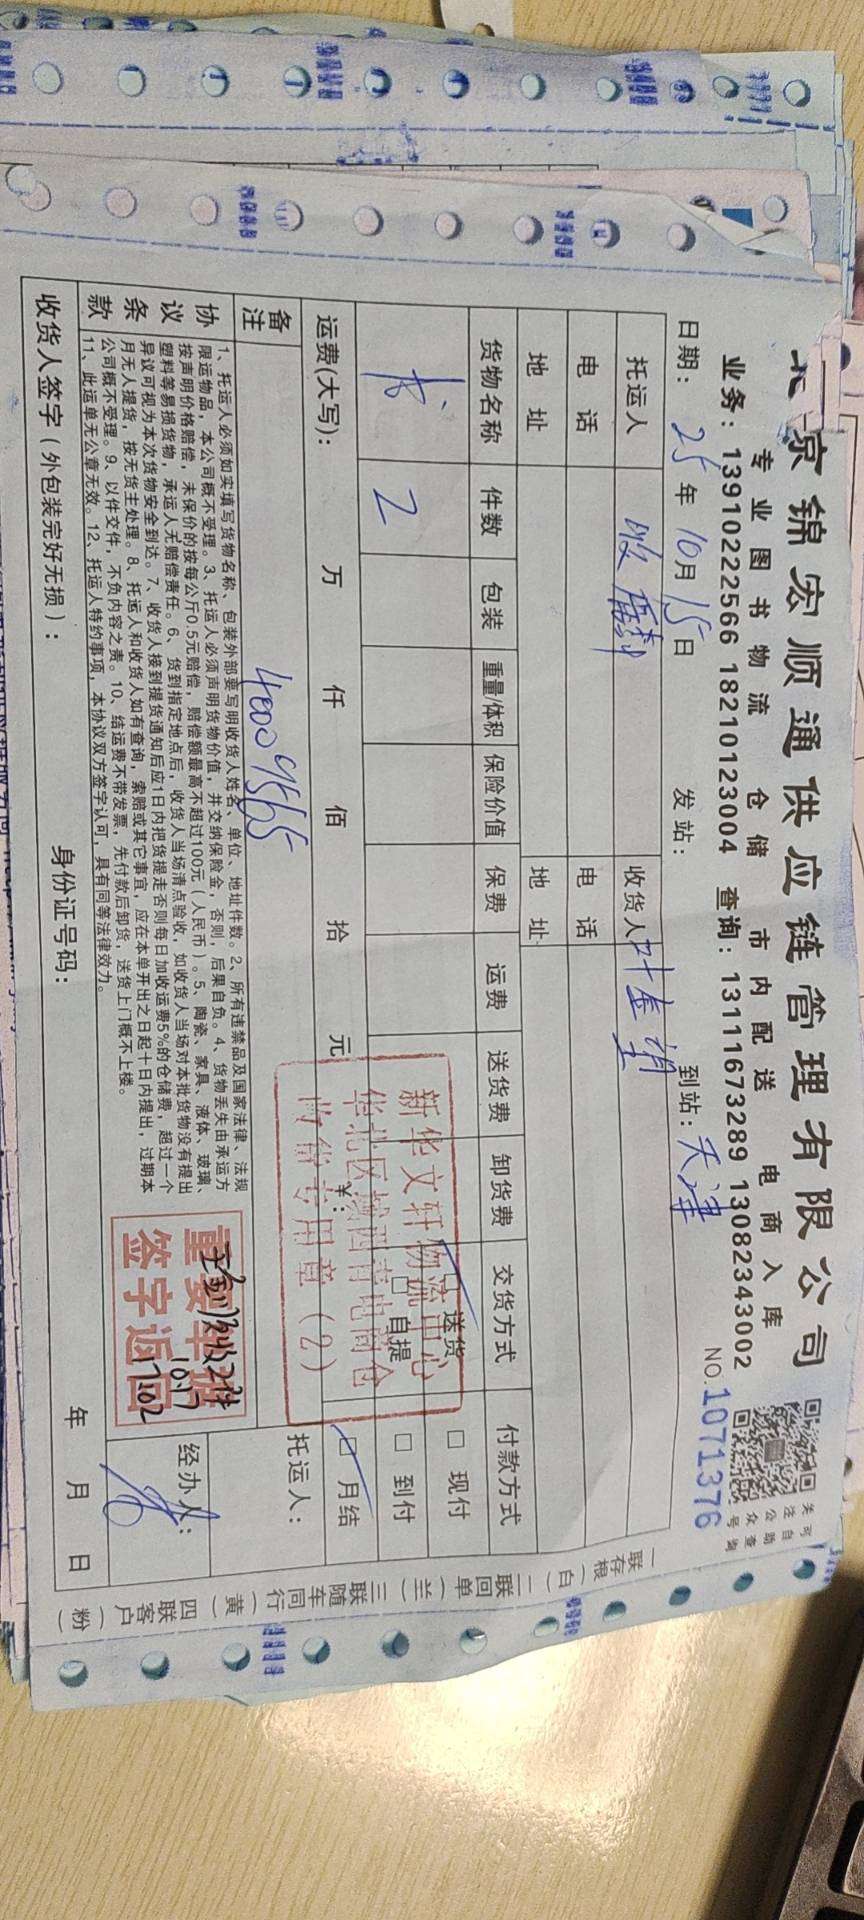 北京锦宏顺通供应链管理有限公司
专业图书物流 仓储 市内配送 电商入库
业务：13910222566 18210123004 查询：13111673289 13082343002
关注公众号
可自助查询
日期：25年10月15日 发站： 到站：天津
NO.1071376
托运人 收货人
电话 电话
地址 地址
货物名称 件数 包装 重量/体积 保险价值 保费 运费 送货费 卸货费 交货方式 付款方式
书 2 □送货 □现付
□自提 □到付
运费(大写)： 万 仟 佰 拾 元 ¥： □月结
新华文轩物流中心
华北区域西青电商仓
收货专用章（2）
备注 40009565
托运人：
协议条款
1、托运人必须如实填写货物名称、包装外部要写明收货人姓名、单位、地址件数。2、所有违禁品及国家法律、法规
限运物品，本公司概不受理。3、托运人必须声明货物价值，并交纳保险金，否则，后果自负。4、货物丢失由承运方
按声明价格赔偿，未保价的按每公斤0.5元赔偿，赔偿额最高不超过100元（人民币）。5、陶瓷、家具、液体、玻璃、
塑料等易损货物，承运人无赔偿责任。6、货到指定地点后，收货人当场清点验收，如收货人当场对本批货物没有提出
异议可视为本次货物安全到达。7、收货人接到提货通知后应1日内把货提走否则每日加收运费5%的仓储费，超过一个
月无人提货，按无货主处理。8、托运人和收货人如有查询，索赔或其它事宜，应在本单开出之日起十日内提出，过期本
公司概不受理。9、以件交件，不负内容之责。10、结运费不带发票，先付款后卸货，送货上门概不上楼。
11、此运单无公章无效。12、托运人特约事项，本协议双方签字认可，具有同等法律效力。
重要单据
签字返回
实收2件
10.17
经办人：
收货人签字（外包装完好无损）： 身份证号码： 年 月 日
一联存根（白）二联回单（兰）三联随车同行（黄）四联客户（粉）